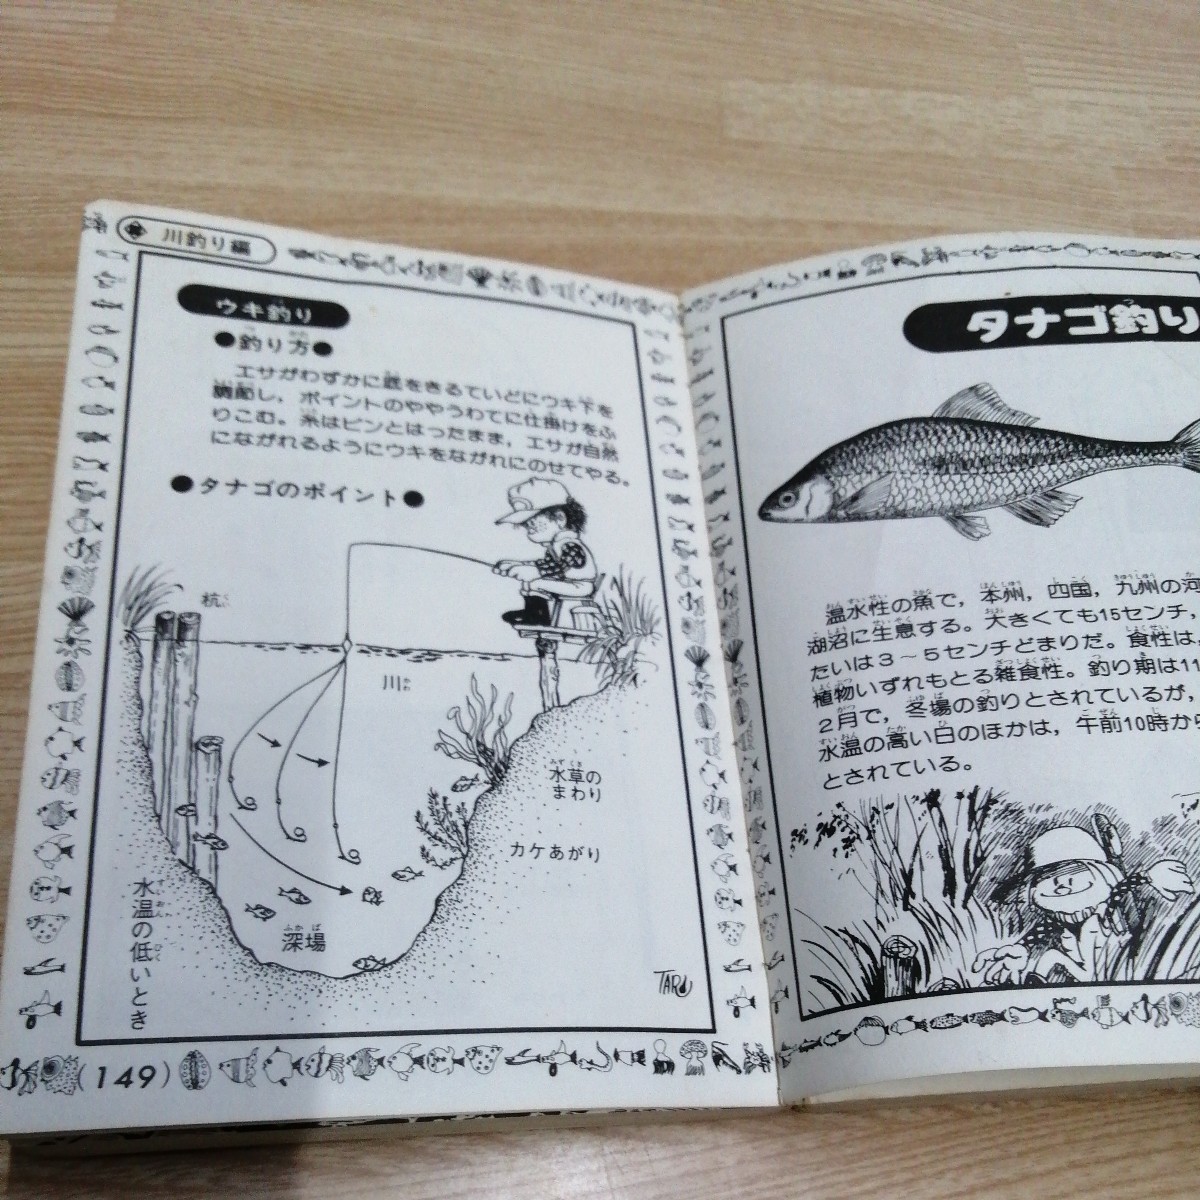 川釣り編
ウキ釣り
●釣り方●
エサがわずかに底をきるていどにウキ下を
調節し，ポイントのややうわてに仕掛けをふ
りこむ。糸はピンとはったまま，エサが自然
にながれるようにウキをながれにのせてやる。
●タナゴのポイント●
杭
川
水草の
まわり
カケあがり
深場
水温の低いとき
TARU
(149)
タナゴ釣り
温水性の魚で，本州，四国，九州の河
湖沼に生息する。大きくても15センチ，
たいは３～５センチどまりだ。食性は，
植物いずれもとる雑食性。釣り期は11
２月で，冬場の釣りとされているが，
水温の高い日のほかは，午前10時から
とされている。